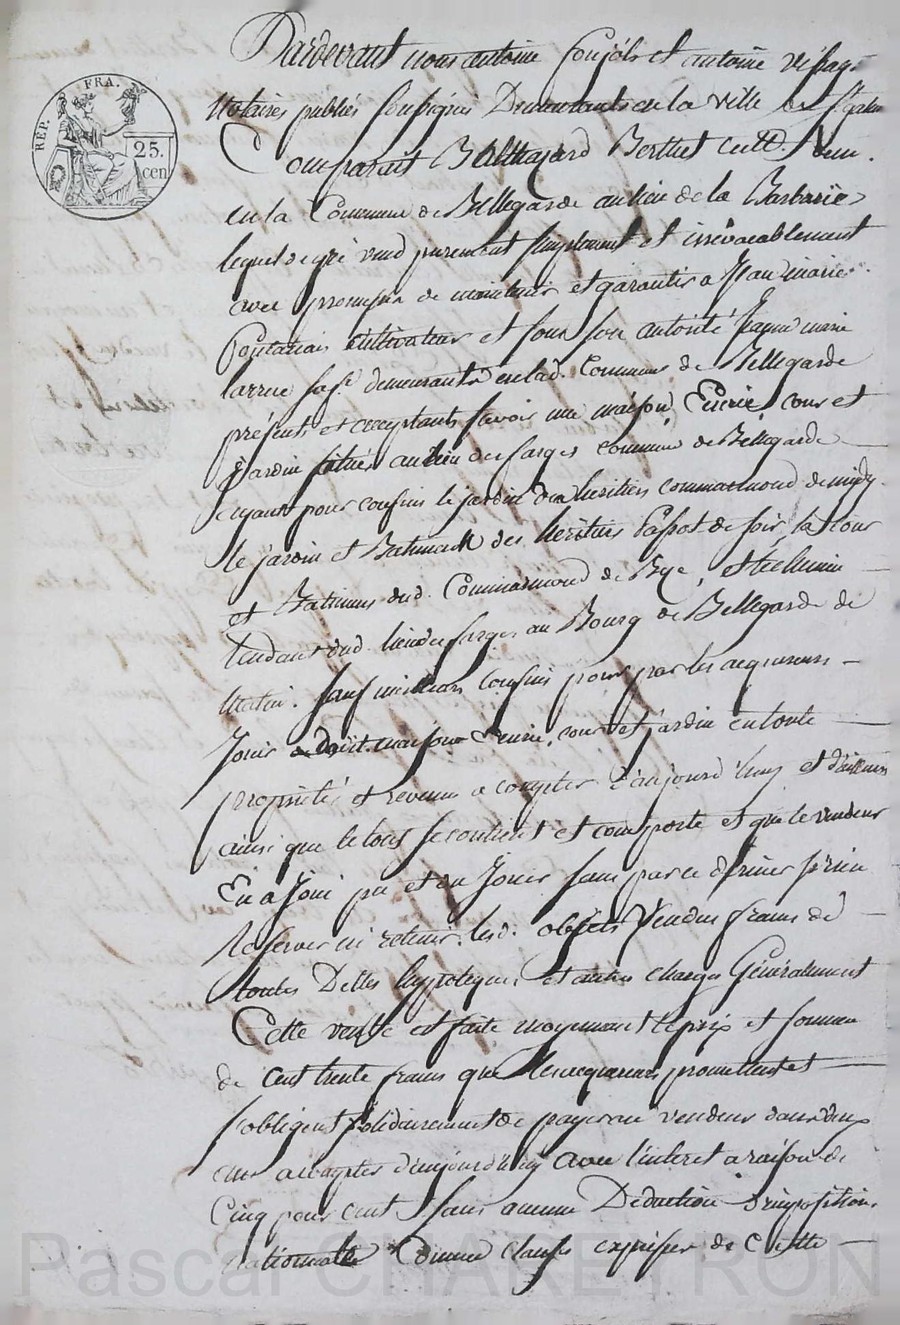 REP. FRA.
25.
cen
Pardevant nous antoine Conjols et antoine
Notaires publics soussignés Demeurants en la ville de St
Comparait Balthazard Berthet cult. Dem.
en la Commune de Bellegarde au lieu de la Barbarie
lequel de gré vend purement simplement et irrévocablement
avec promesse de maintenir et garantir a Jean marie
cultivateur et sous son autorité Jeanne marie
larrue sa fe. demeurants en lad. Commune de Bellegarde
présents et acceptants savoir une maison Ecurie, cour et
Jardin situés au lieu des farges commune de Bellegarde
ayant pour confins le jardin des heritiers commarmond de midy.
le jardin et Batiment des héritiers Passot de soir, la Cour
et Batiment dud. Commarmond de Bize, et le chemin
tendant dud. lieu des farges au Bourg de Bellegarde de
Matin. sauf meilleurs confins pour par les acquereurs
Jouir desdit. maison Ecurie, cour et jardin en toute
propriété et revenu a compter d'aujourd'huy et
ainsi que le tout se contient et comporte et que le vendeur
En a Joui pu et du Jouir sans par ce dernier s'en rien
Reserver ni retenir. lesd. objets Vendus francs de
toutes Dettes hypoteques et autres charges Généralement
Cette vente est faite moyennant le prix et somme
de cent trente francs que les acquereurs promettent et
s'obligent solidairement de payer au vendeur dans deux
ans a compter d'aujourd'huy avec l'interet a raison de
Cinq pour cent sans aucune Deduction d'imposition
nationale Comme clause expresse de Cette
Pascal CHARETRON